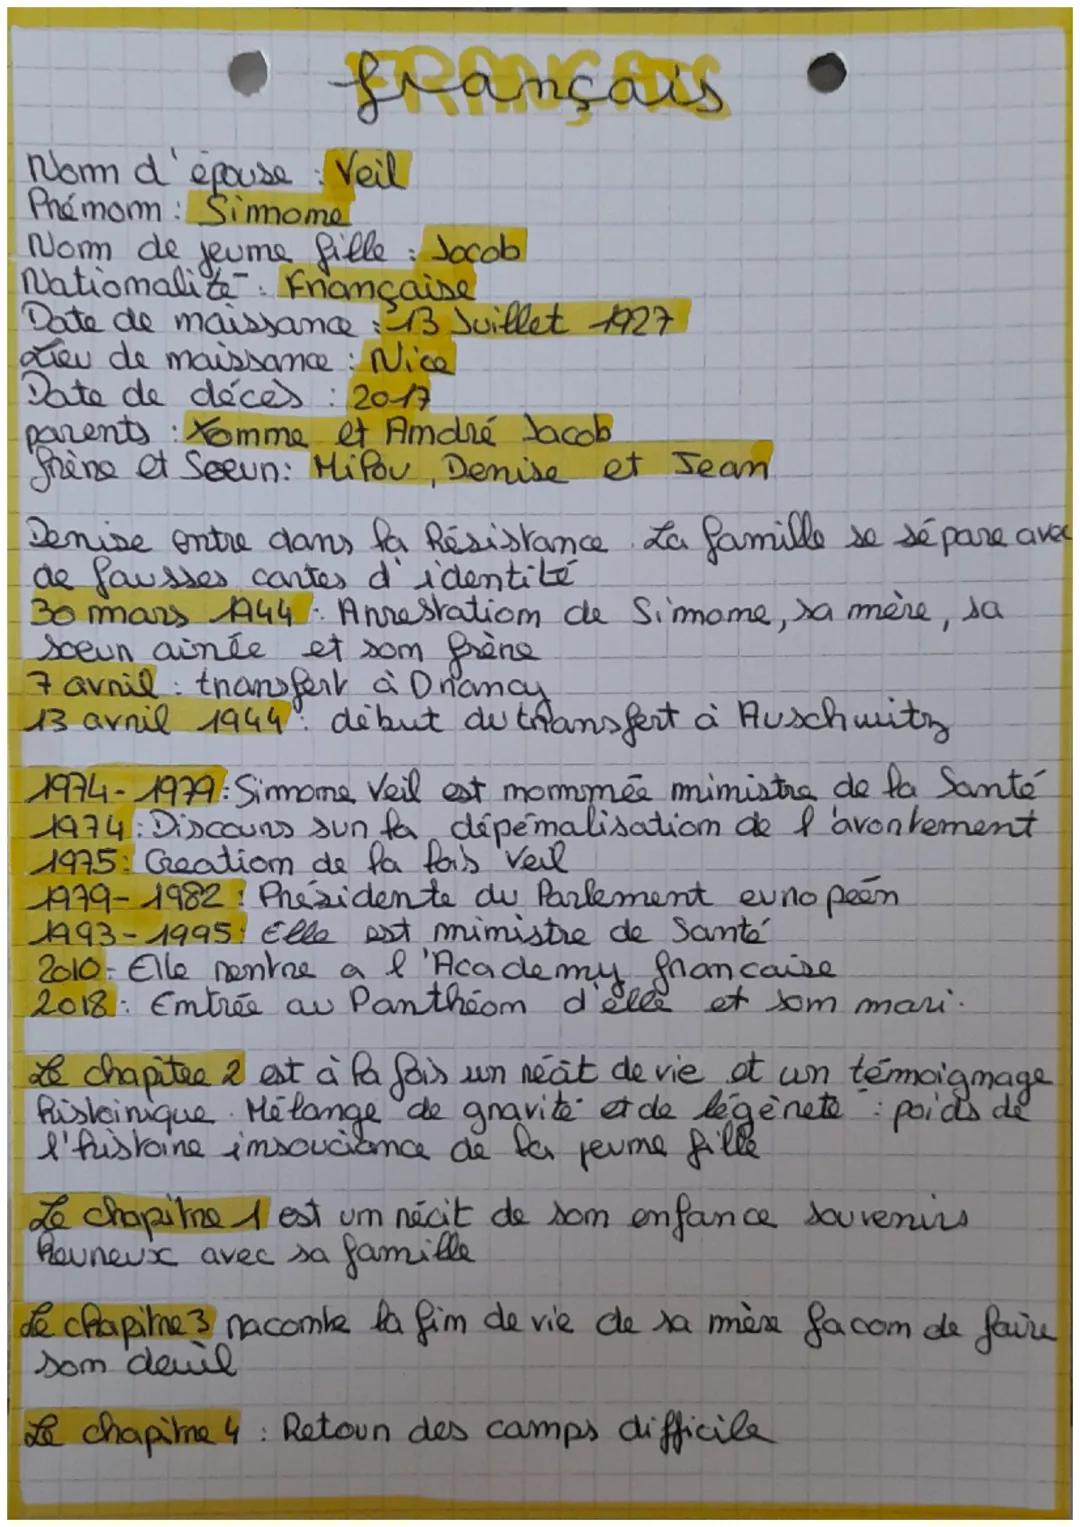 français
Nom d'épouse : Veil
Prénom : Simone
Nom de jeune fille : Jacob
Nationalité : Française
Date de naissance : 13 Juillet 1927
Lieu de naissance : Nice
Date de décès : 2017
parents : Yonne et André Jacob
frère et Soeur : Milou, Denise et Jean
Denise entre dans la Résistance. La famille se sépare avec
de fausses cartes d'identité
30 mars 1944 : Arrestation de Simone, sa mère, sa
soeur ainée et son frère
7 avril : transfert à Drancy
13 avril 1944 : début du transfert à Auschwitz
1974-1979 : Simone Veil est nommée ministre de la Santé
1974 : Discours sur la dépénalisation de l'avortement
1975 : Creation de la lois Veil
1979-1982 : Présidente du Parlement européen
1993-1995 : Elle est ministre de Santé
2010 - Elle rentre a l'Academy francaise
2018 : Entrée au Panthéon d'elle et son mari.
Le chapitre 2 est à la fois un récit de vie et un témoignage
historique. Mélange de gravité et de légèreté : poids de
l'histoire insouciance de la jeune fille
Le chapitre 1 est un récit de son enfance souvenirs
heureux avec sa famille
Le chapitre 3 raconte la fin de vie de sa mère facon de faire
son deuil
Le chapitre 4 : Retour des camps difficile